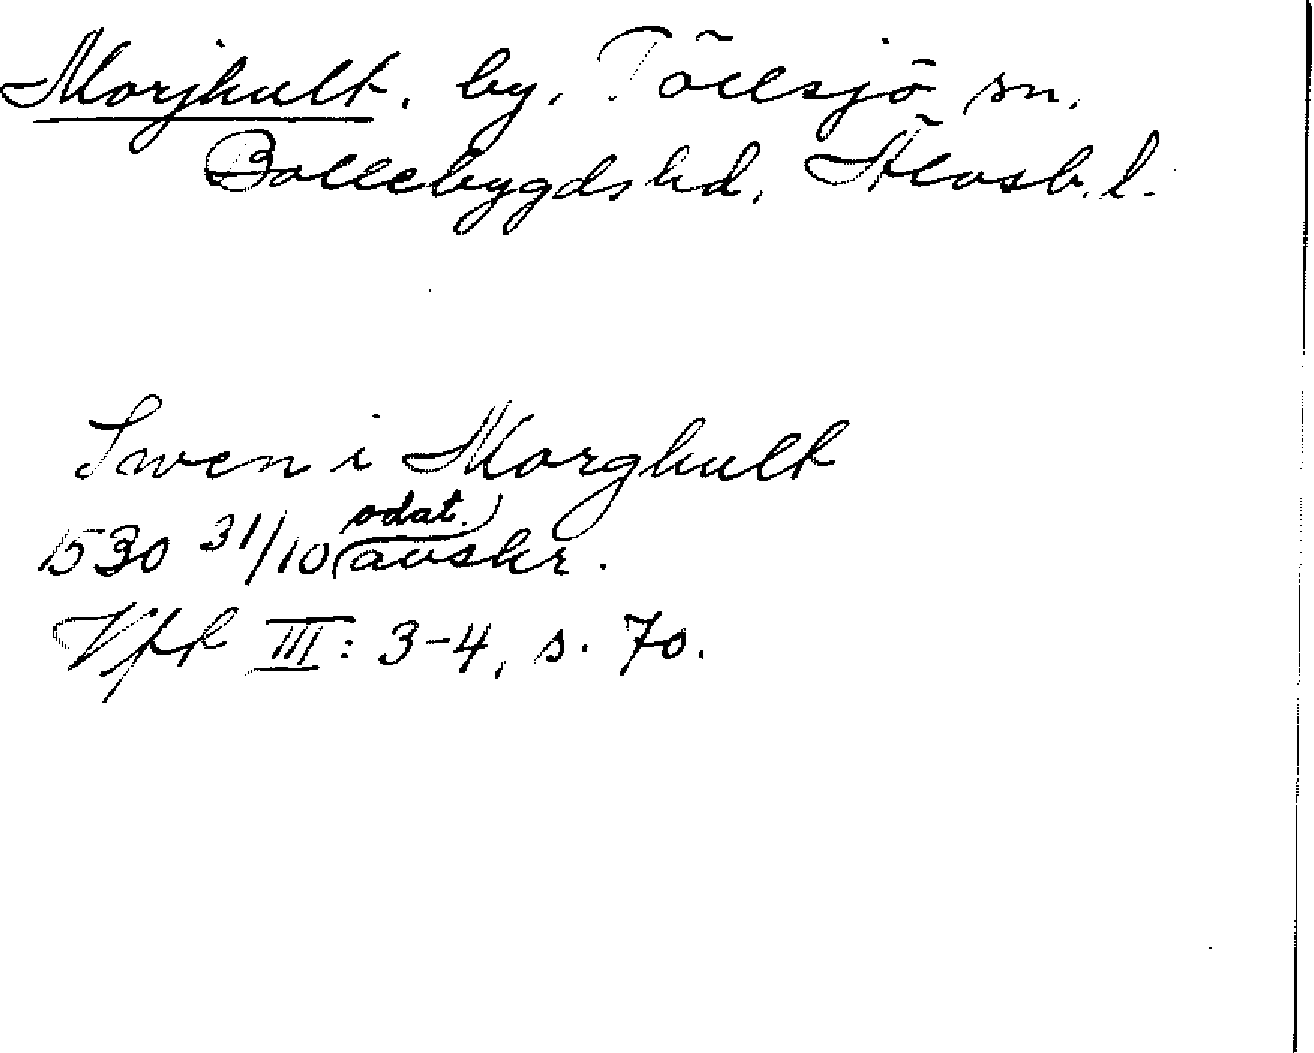 Morjhult, by, Töllsjö sn,
Bollebygds hd, Älvsb. l.
Swen i Morghult
1530 31/10 (odat. avskr.)
Vfr III: 3-4, s. 70.